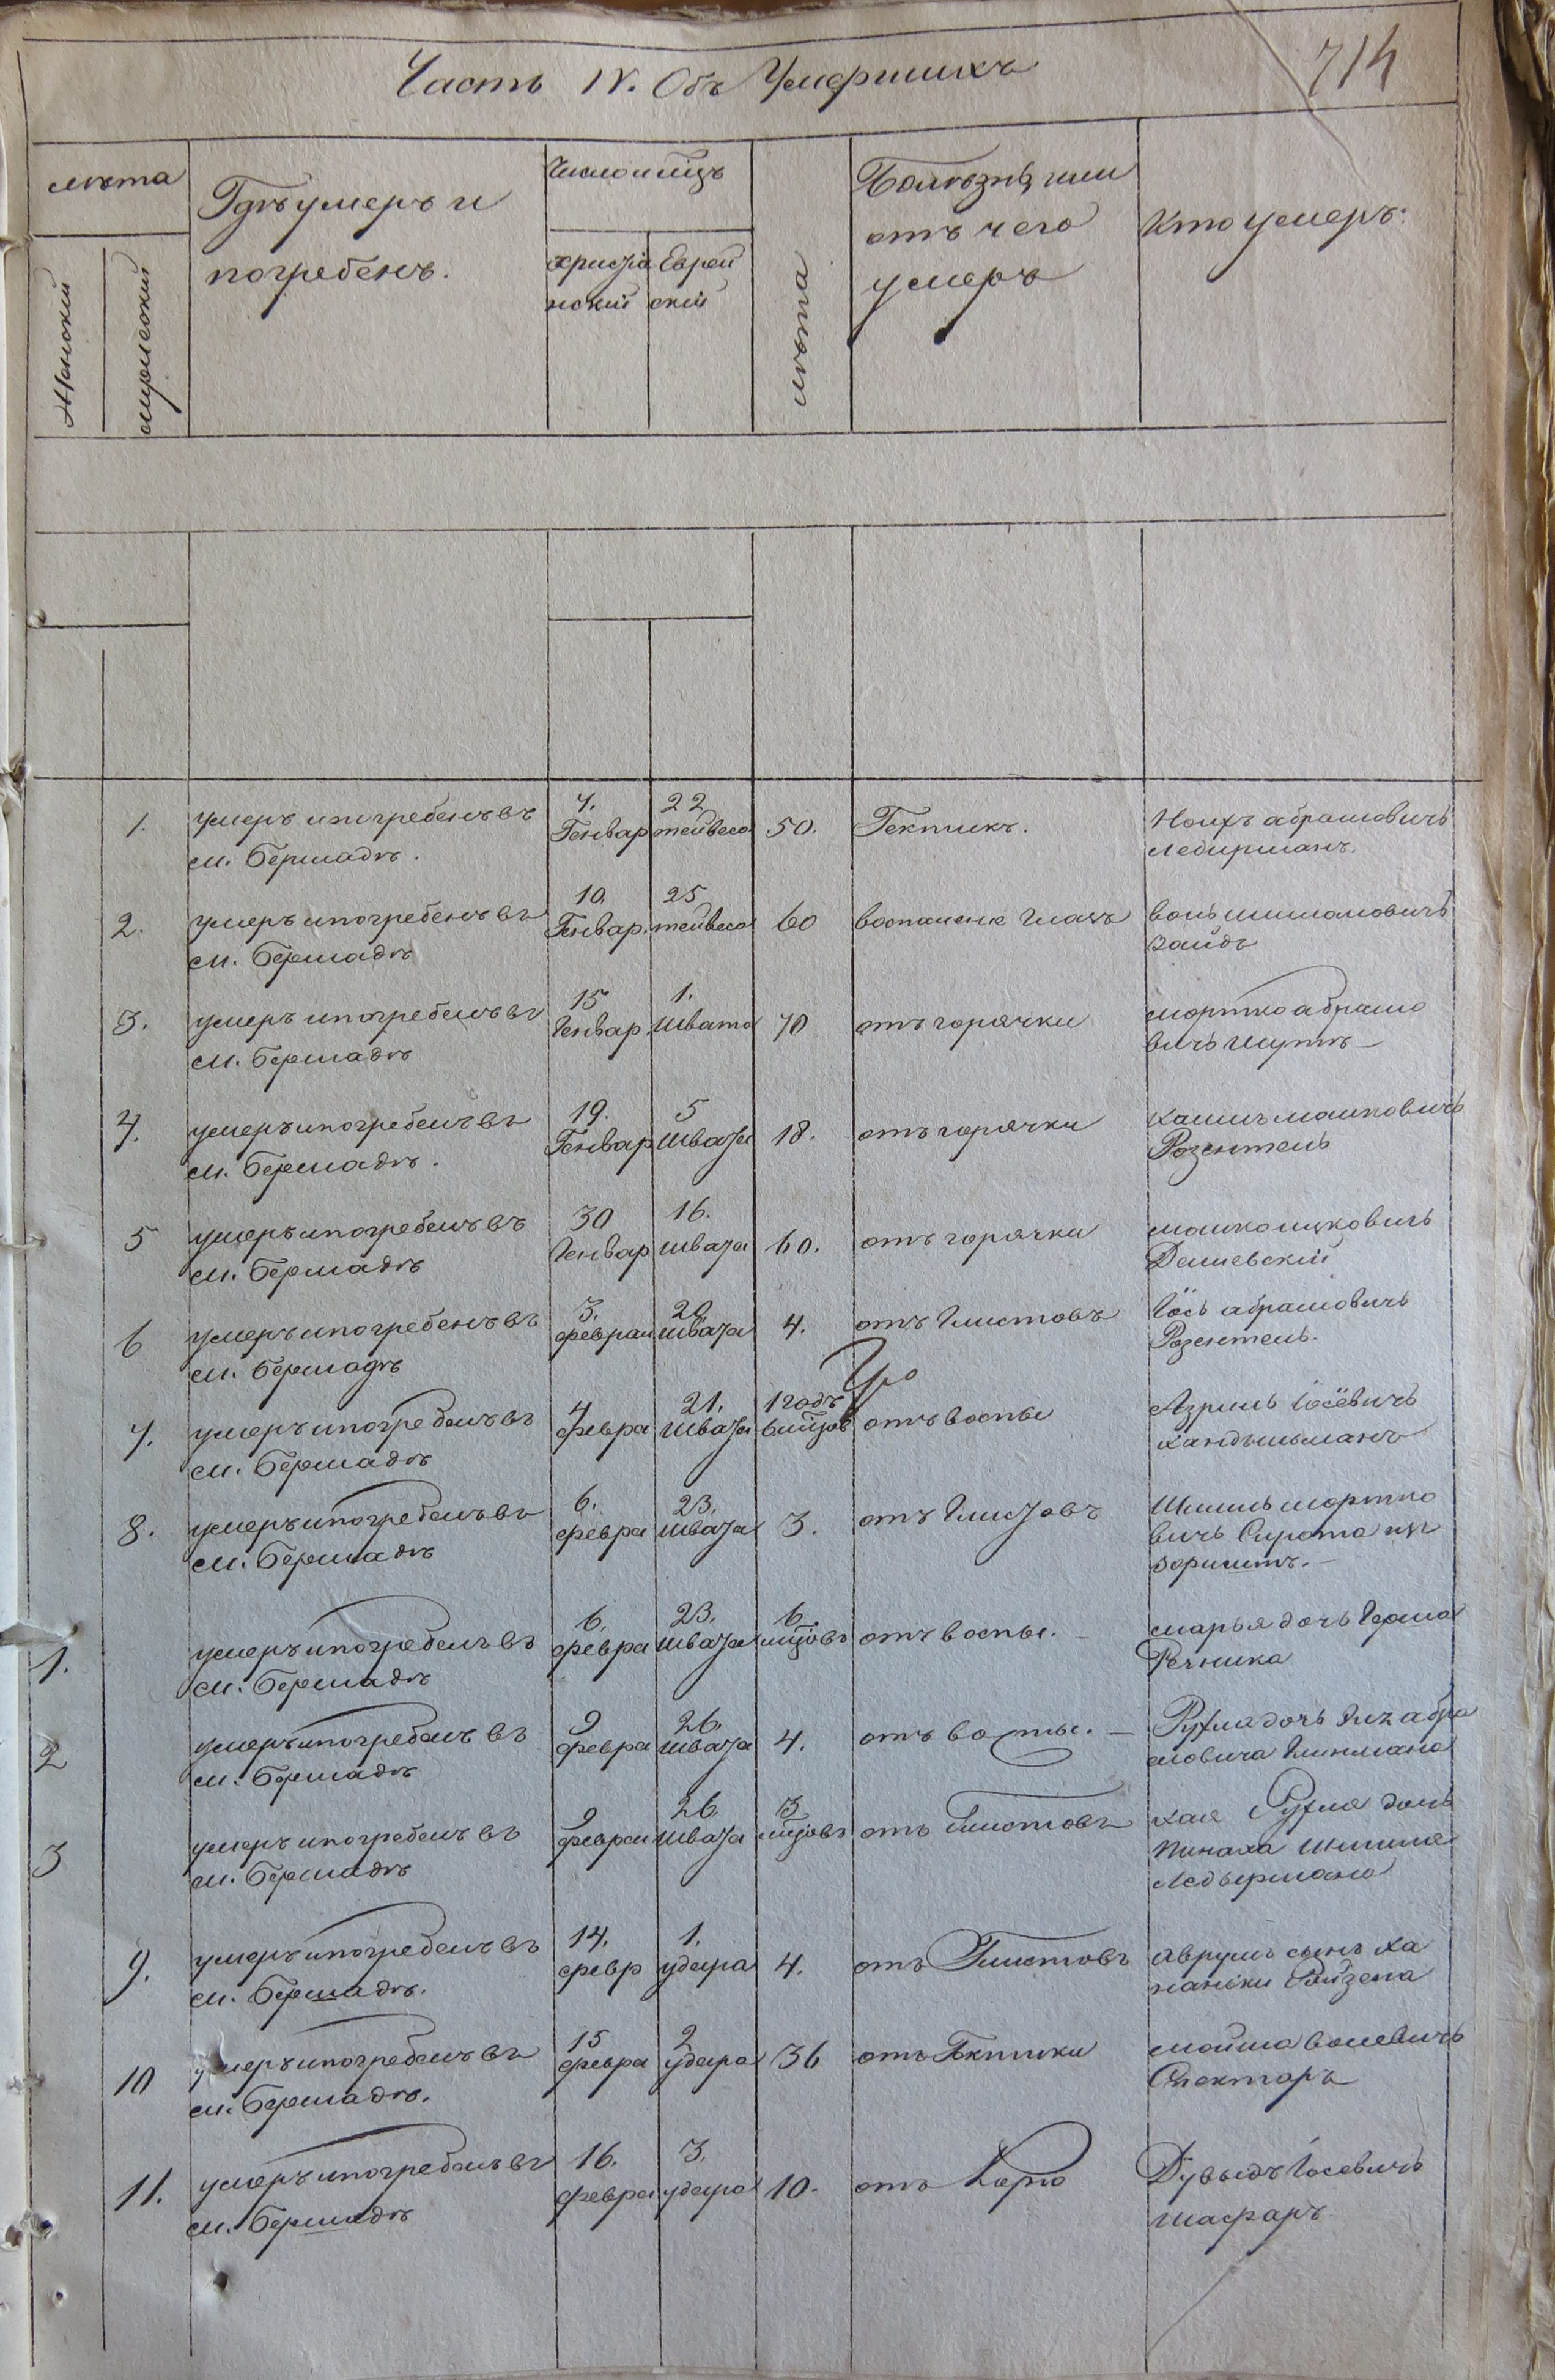 Часть IV. Объ Умершихъ
714
лѣта
Женскій
мужескій
Гдѣ умеръ и
погребенъ.
Число и мѣцъ
христіа
нскій
Еврей
скій
лѣта
Болѣзнь или
отъ чего
умеръ
Кто умеръ.
1.
умеръ и погребенъ въ
м. Бершадѣ.
7.
Генвар
22
тейвеса
50.
Гектикъ.
Нонхъ абрамовичъ
Ледирманъ.
2.
умеръ и погребенъ въ
м. Бершадѣ
10.
Генвар.
25
тейвеса
60
воспаленіе глазъ
воль шлиомовичъ
зайдъ
3.
умеръ и погребенъ въ
м. Бершадѣ
15
Генвар.
1.
швата
70
отъ горячки
мортко абрамо
вичъ
4.
умеръ и погребенъ въ
м. Бершадѣ.
19.
Генвар
5
швата
18.
отъ горячки
хаимъ машковичъ
Розентель
5
умеръ и погребенъ въ
м. Бершадѣ
30
Генвар
16.
швата
60.
отъ горячки
мошко ицковичъ
Дашевскій
6
умеръ и погребенъ въ
м. Бершадѣ
3.
феврал
20.
швата
4.
отъ Глистовъ
Іось абрамовичъ
Розентель.
7.
умеръ и погребенъ въ
м. Бершадѣ
4
февра
21.
швата
1 годъ
6 мцовъ
отъ воспы
Азриль Іосевичъ
хандыльманъ
8.
умеръ и погребенъ въ
м. Бершадѣ
6.
февра
23.
швата
3.
отъ Глистовъ
Шмиль мортко
вичъ Сирота
1.
умеръ и погребенъ въ
м. Бершадѣ
6.
февра
23.
швата
6
мцовъ
отъ воспы.
марья дочь Герша
Речника
2
умеръ и погребенъ въ
м. Бершадѣ
9
февра
26.
швата
4.
отъ воспы.
Рухля дочь абра
мовича
3
умеръ и погребенъ въ
м. Бершадѣ
9
феврал
26
швата
3
мцовъ
отъ Глистовъ
хая Рухля дочь
пинаха
Ледырмана
9.
умеръ и погребенъ въ
м. Бершадѣ.
14.
февр
1.
удара
4.
отъ Глистовъ
аврумъ сынъ ха
наньки Ройзена
10
умеръ и погребенъ въ
м. Бершадѣ.
15
февра
2
удара
36
отъ Гектики
мойша волевичъ
Спекторъ
11.
умеръ и погребенъ въ
м. Бершадѣ
16.
февра
3.
удара
10.
отъ Корю
Дувыдъ Іосевичъ
шафаръ